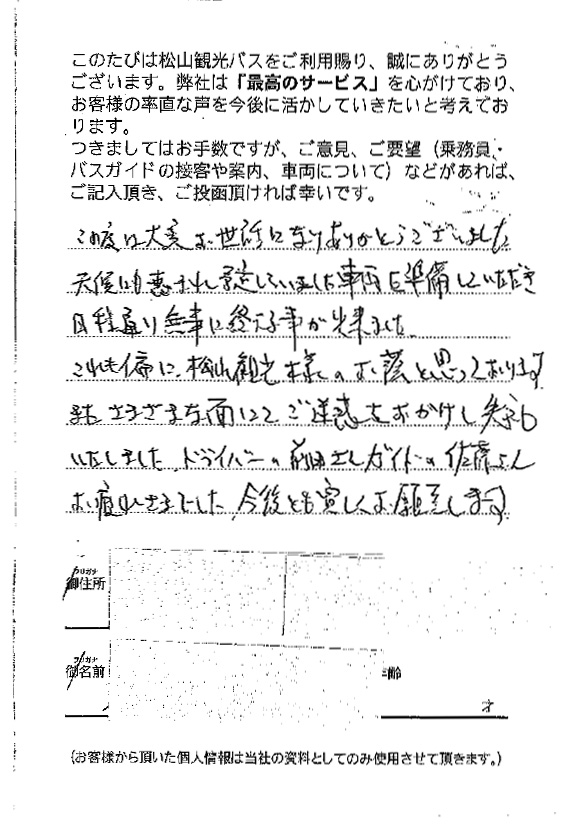 このたびは松山観光バスをご利用賜り、誠にありがとう
ございます。弊社は「最高のサービス」を心がけており、
お客様の率直な声を今後に活かしていきたいと考えてお
ります。
つきましてはお手数ですが、ご意見、ご要望（乗務員・
バスガイドの接客や案内、車両について）などがあれば、
ご記入頂き、ご投函頂ければ幸いです。
この度は大変お世話になりありがとうございました
天候にも恵まれ予定していました車両を準備していただき
日程通り無事に終える事が出来ました
これも偏に、松山観光様のお蔭と思っております
また、さまざまな面にてご迷惑をおかけし失礼
いたしました、ドライバーの前田さんガイドの佐藤さん
お疲れさまでした、今後とも宜しくお願い致します
フリガナ
御住所
フリガナ
御名前
年齢
才
（お客様から頂いた個人情報は当社の資料としてのみ使用させて頂きます。）